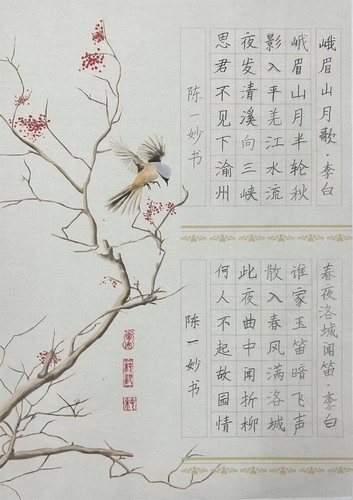 峨眉山月歌·李白
峨眉山月半轮秋
影入平羌江水流
夜发清溪向三峡
思君不见下渝州
陈一妙书
春夜洛城闻笛·李白
谁家玉笛暗飞声
散入春风满洛城
此夜曲中闻折柳
何人不起故园情
陈一妙书